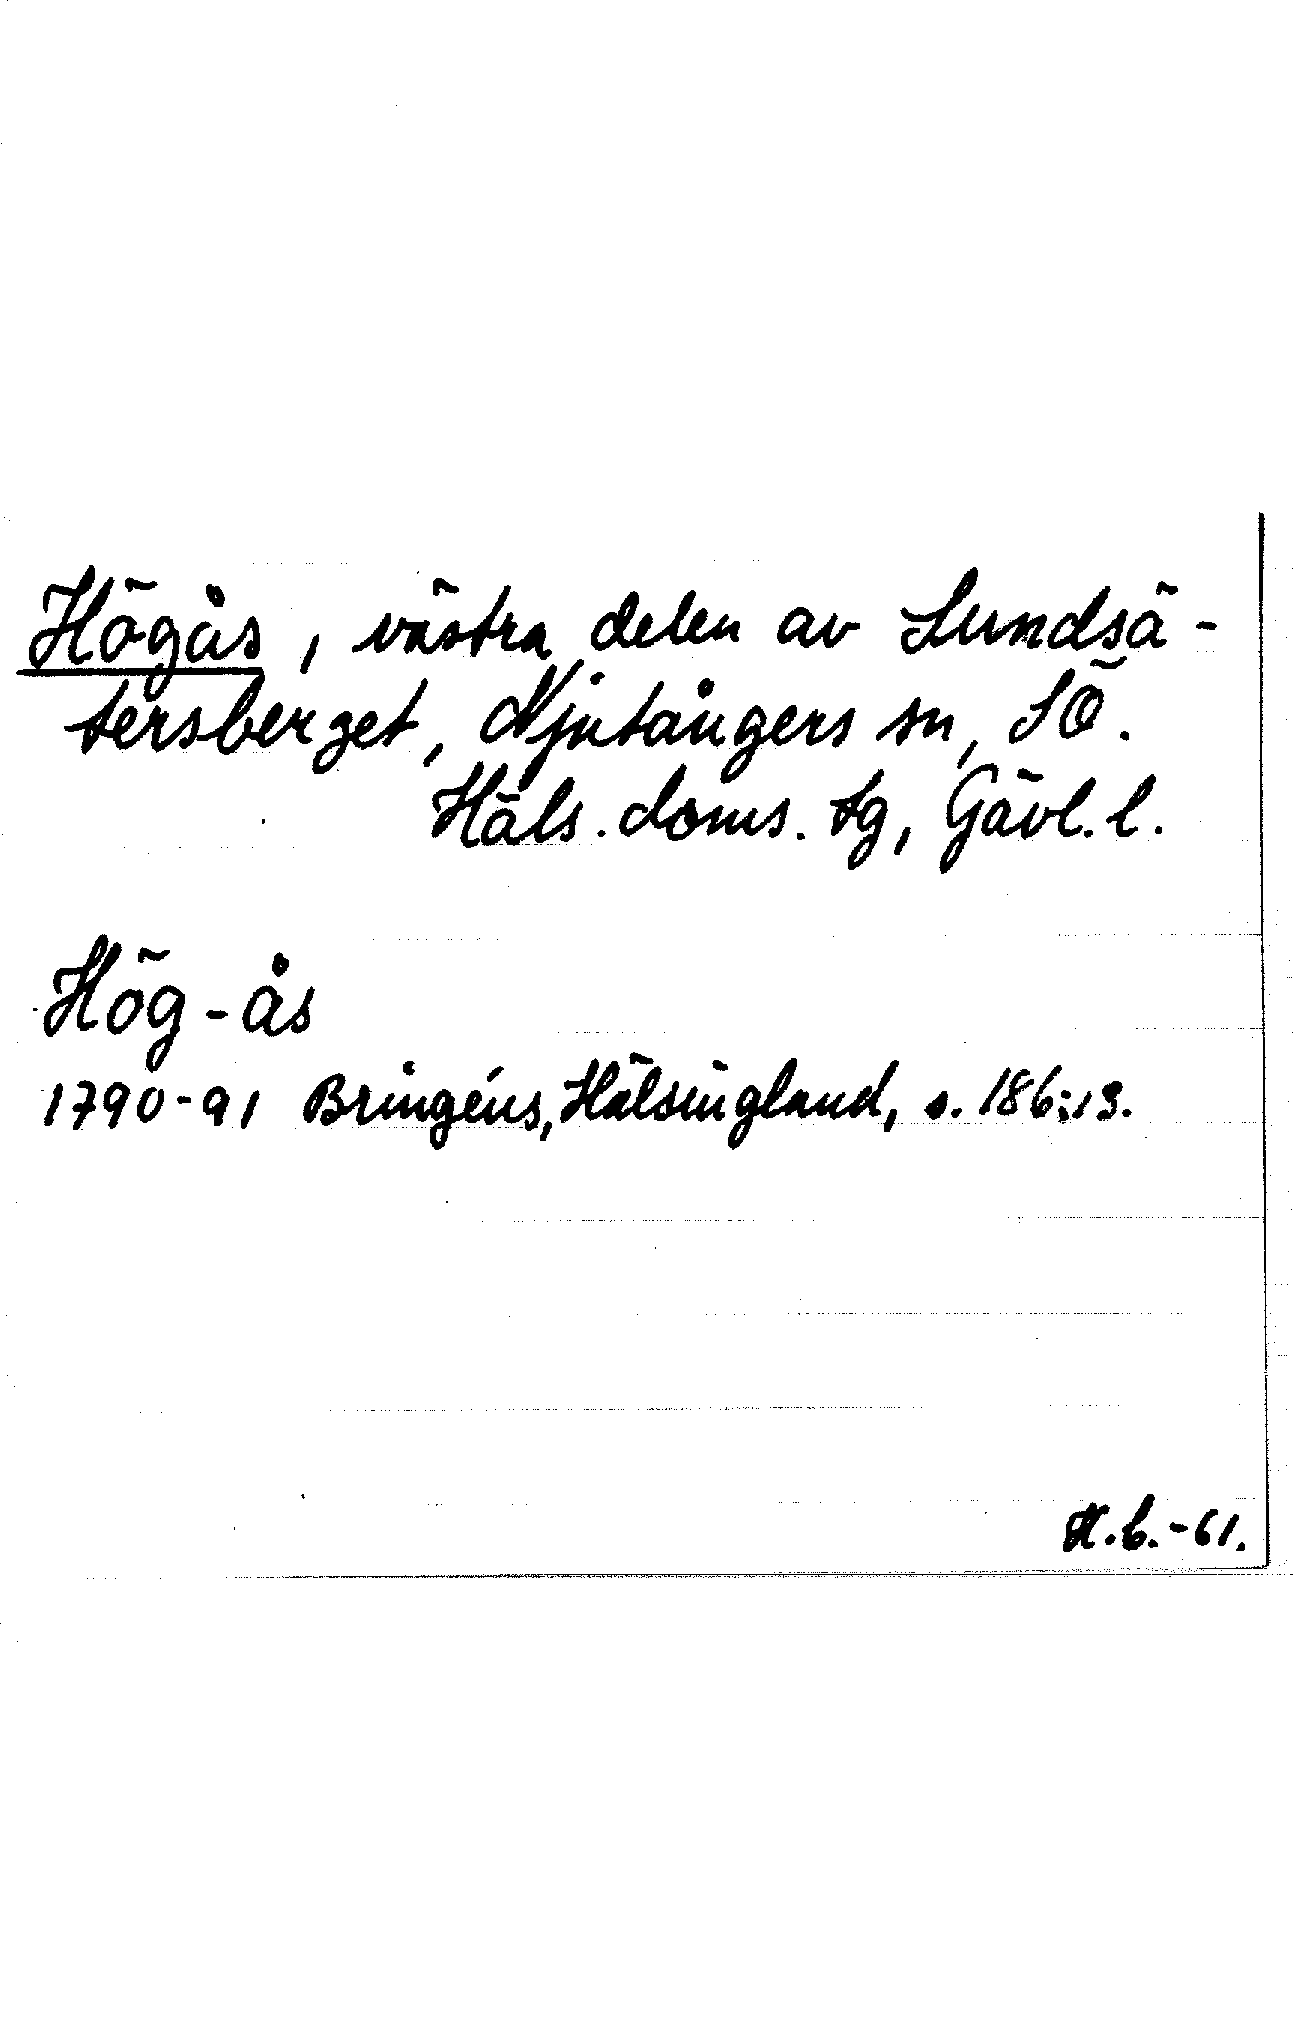 Högås, västra delen av Lundsä-
tersberget, Njutångers sn, SÖ.
Häls. doms. tg, Gävl. l.
Hög-ås
1790-91 Bringéus, Hälsingland, s. 186:13.
H.b.-61.